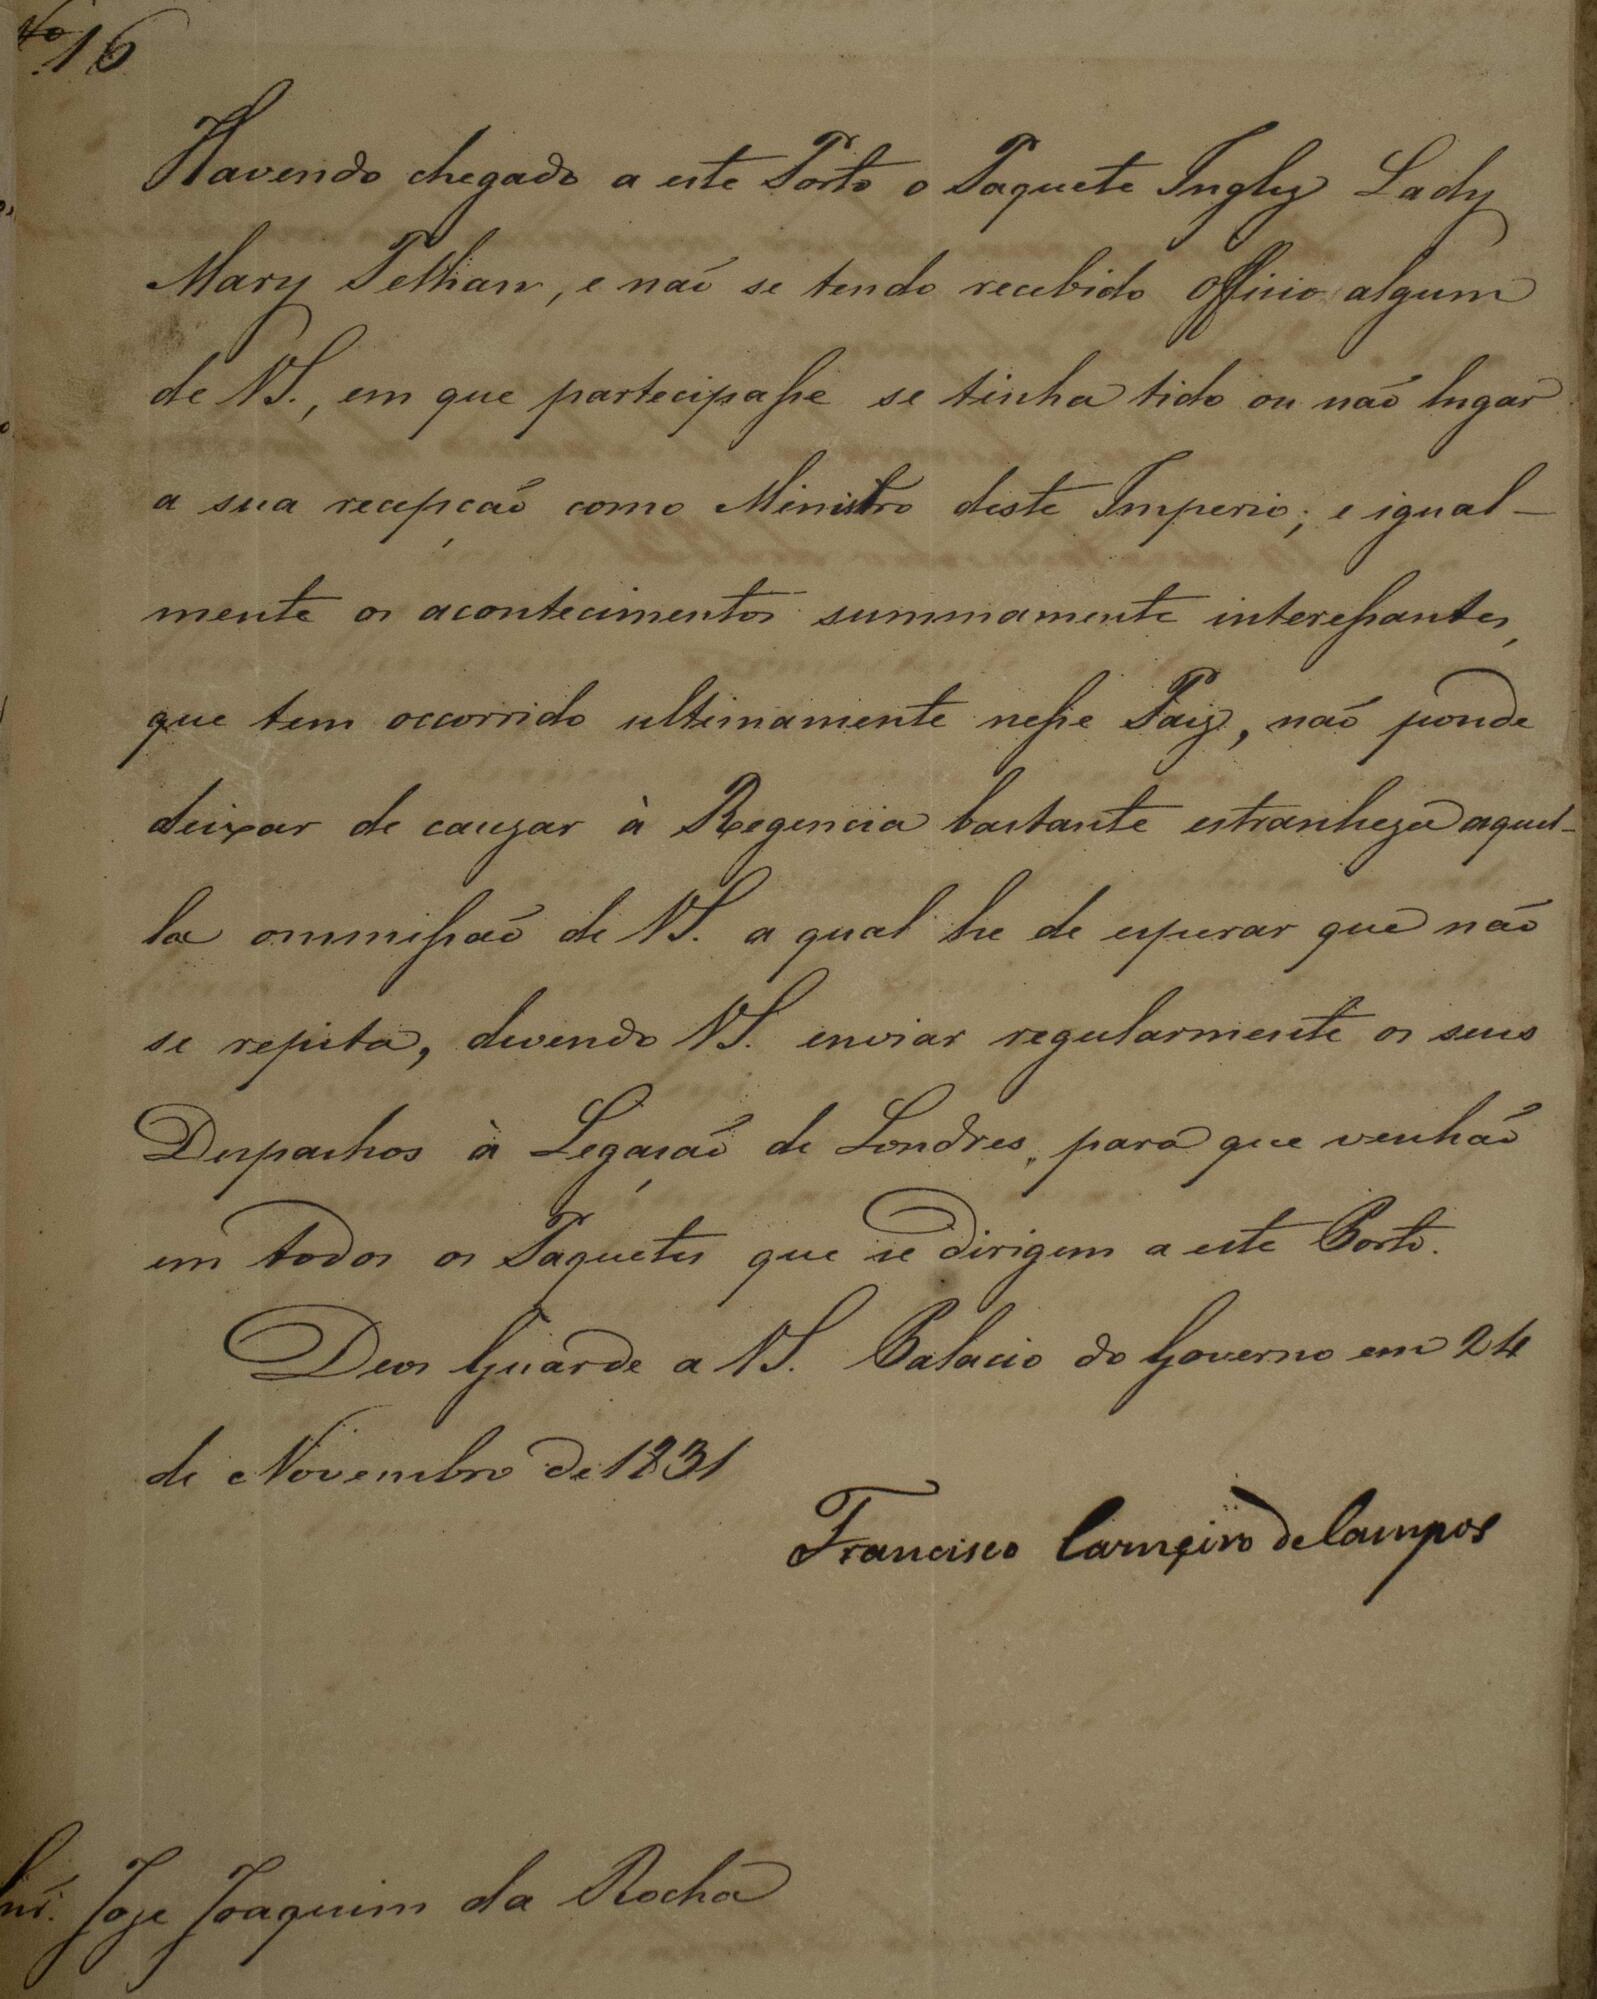 No 16
Havendo chegado a este Porto o Paquete Inglez Lady
Mary Pelhan, e não se tendo recebido Officio algum
de VS., em que partecipasse se tinha tido ou não lugar
a sua recepção como Ministro deste Imperio; e igual-
mente os acontecimentos summamente interessantes,
que tem occorrido ultimamente nesse Paiz, não ponde
deixar de cauzar à Regencia bastante estranheza aquel-
la ommissão de VS. a qual he de esperar que não
se repita, devendo VS. enviar regularmente os seus
Despachos à Legação de Londres, para que venhão
em todos os Paquetes que se dirigem a este Porto.
Deos Guarde a VS. Palacio do Governo em 24
de Novembro de 1831
Francisco Carneiro de Campos
Joze Joaquim da Rocha